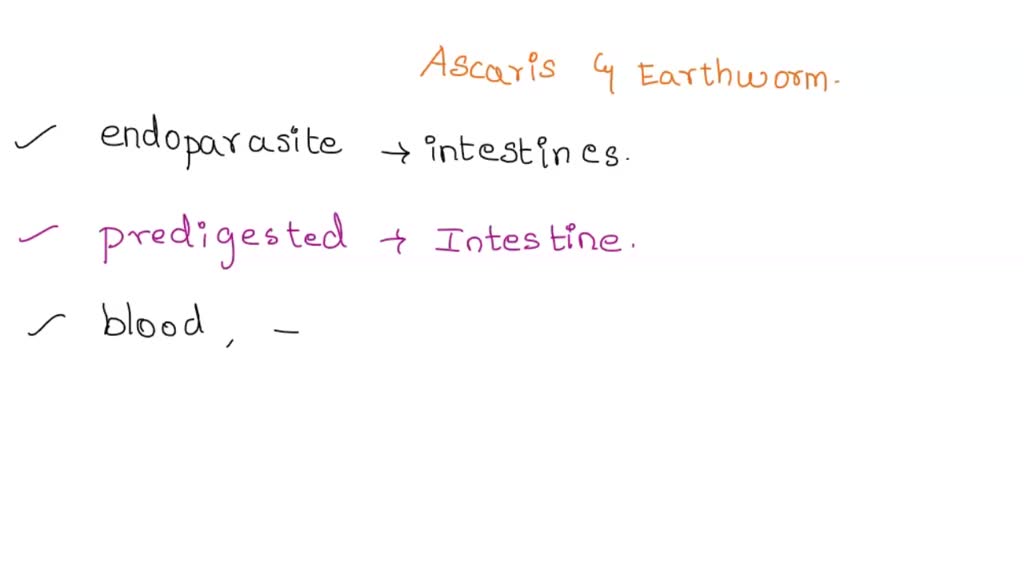 Ascaris & Earthworm.
✓ endoparasite → intestines.
✓ predigested → Intestine.
✓ blood, —